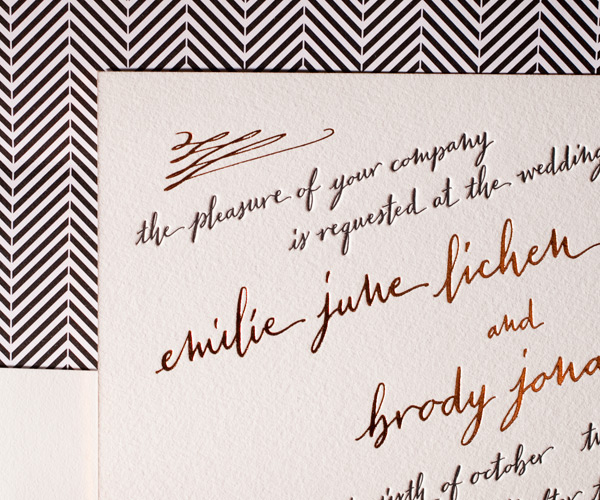 the pleasure of your company
is requested at the wedding
emilie june lichen
and
brody
of october